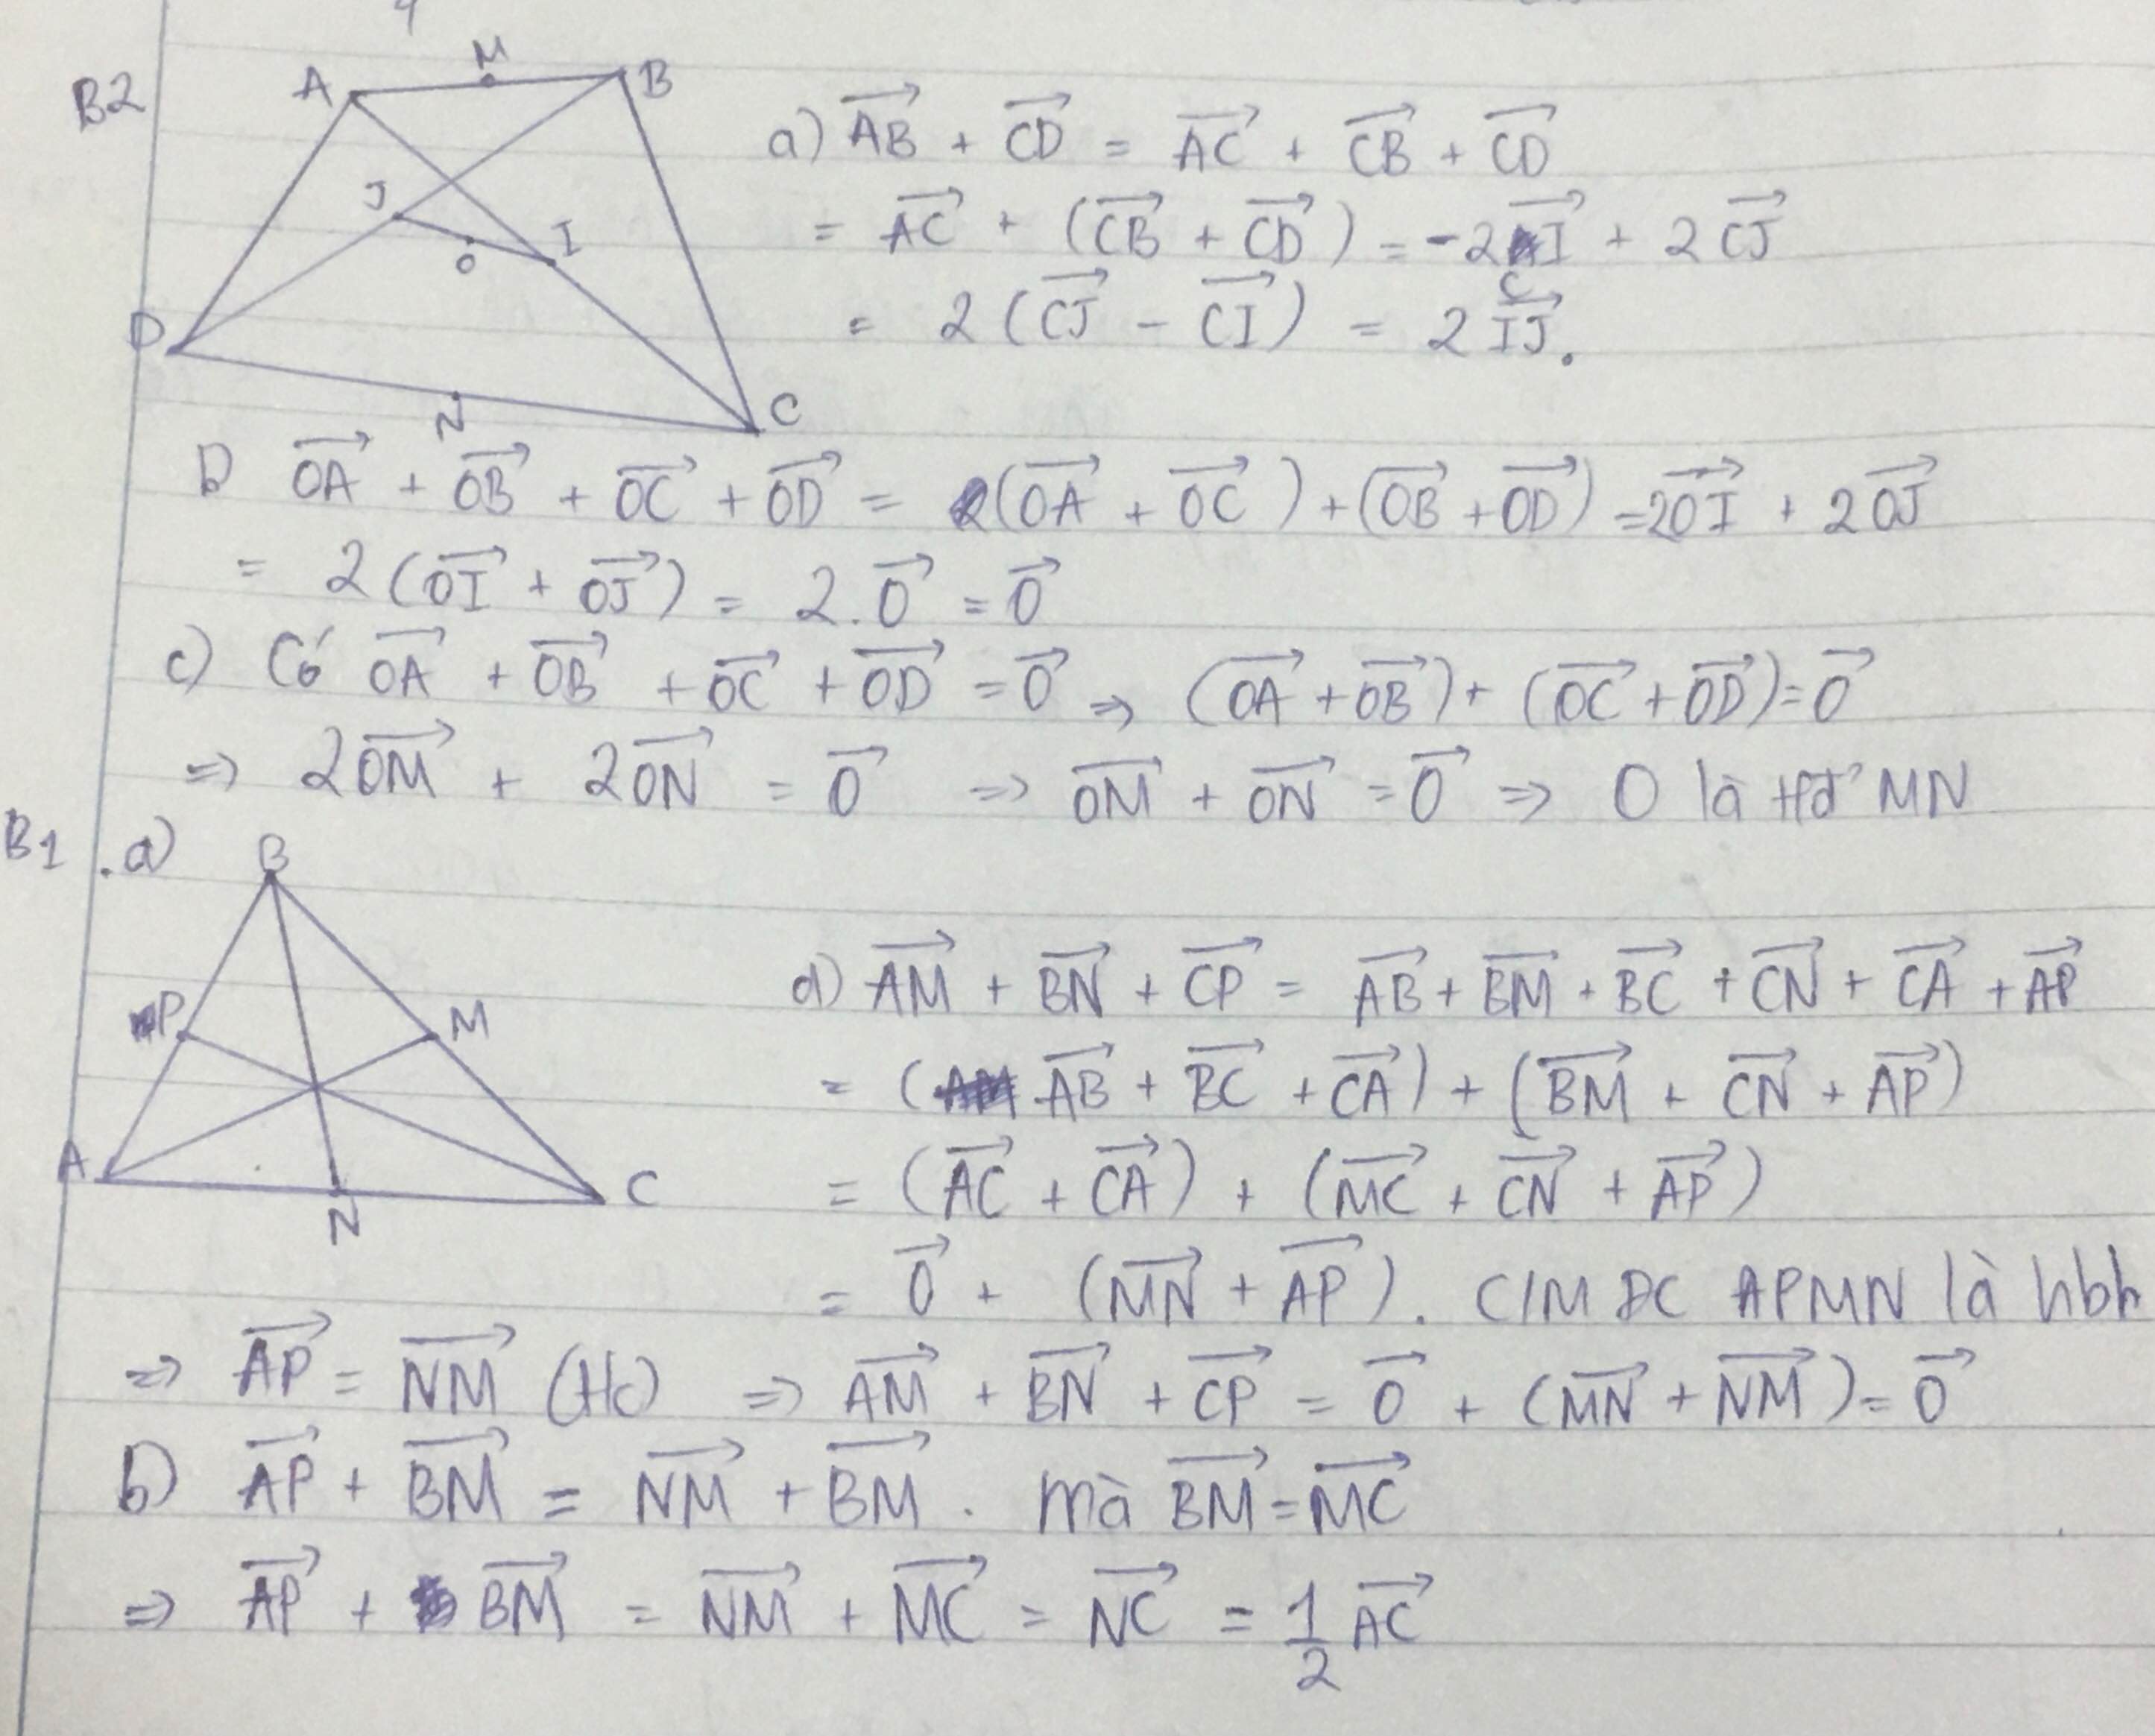 B2
A M B
J I
O
D N C
a) \overrightarrow{AB} + \overrightarrow{CD} = \overrightarrow{AC} + \overrightarrow{CB} + \overrightarrow{CD}
= \overrightarrow{AC} + (\overrightarrow{CB} + \overrightarrow{CD}) = -2\overrightarrow{CI} + 2\overrightarrow{CJ}
= 2(\overrightarrow{CJ} - \overrightarrow{CI}) = 2\overrightarrow{IJ}.
b) \overrightarrow{OA} + \overrightarrow{OB} + \overrightarrow{OC} + \overrightarrow{OD} = (\overrightarrow{OA} + \overrightarrow{OC}) + (\overrightarrow{OB} + \overrightarrow{OD}) = 2\overrightarrow{OI} + 2\overrightarrow{OJ}
= 2(\overrightarrow{OI} + \overrightarrow{OJ}) = 2.\overrightarrow{0} = \overrightarrow{0}
c) Có \overrightarrow{OA} + \overrightarrow{OB} + \overrightarrow{OC} + \overrightarrow{OD} = \overrightarrow{0} => (\overrightarrow{OA} + \overrightarrow{OB}) + (\overrightarrow{OC} + \overrightarrow{OD}) = \overrightarrow{0}
=> 2\overrightarrow{OM} + 2\overrightarrow{ON} = \overrightarrow{0} => \overrightarrow{OM} + \overrightarrow{ON} = \overrightarrow{0} => O là tđ' MN
B1 . a)
B
P M
A N C
a) \overrightarrow{AM} + \overrightarrow{BN} + \overrightarrow{CP} = \overrightarrow{AB} + \overrightarrow{BM} + \overrightarrow{BC} + \overrightarrow{CN} + \overrightarrow{CA} + \overrightarrow{AP}
= (\overrightarrow{AB} + \overrightarrow{BC} + \overrightarrow{CA}) + (\overrightarrow{BM} + \overrightarrow{CN} + \overrightarrow{AP})
= (\overrightarrow{AC} + \overrightarrow{CA}) + (\overrightarrow{MC} + \overrightarrow{CN} + \overrightarrow{AP})
= \overrightarrow{0} + (\overrightarrow{MN} + \overrightarrow{AP}). C/M ĐC APMN là hbh
=> \overrightarrow{AP} = \overrightarrow{NM} (t/c) => \overrightarrow{AM} + \overrightarrow{BN} + \overrightarrow{CP} = \overrightarrow{0} + (\overrightarrow{MN} + \overrightarrow{NM}) = \overrightarrow{0}
b) \overrightarrow{AP} + \overrightarrow{BM} = \overrightarrow{NM} + \overrightarrow{BM} . mà \overrightarrow{BM} = \overrightarrow{MC}
=> \overrightarrow{AP} + \overrightarrow{BM} = \overrightarrow{NM} + \overrightarrow{MC} = \overrightarrow{NC} = \frac{1}{2} \overrightarrow{AC}